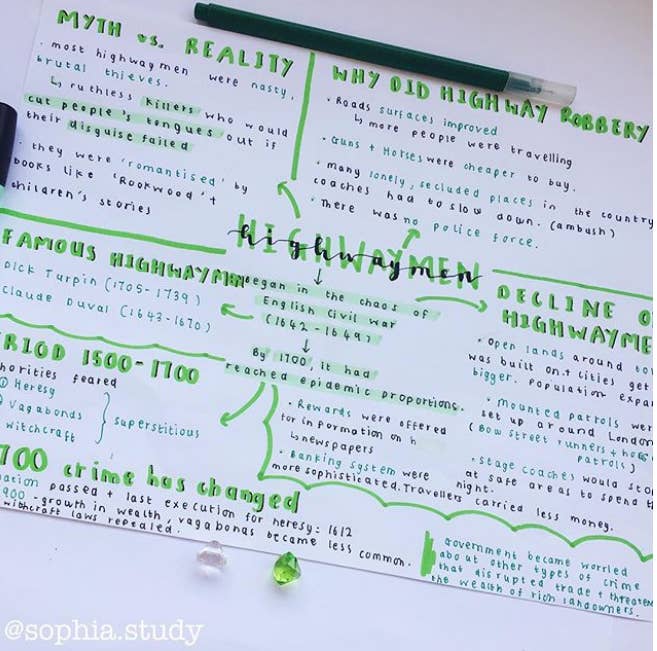 MYTH vs. REALITY
· most highwaymen were nasty,
brutal thieves.
↳ ruthless killers who would
cut people's tongues out if
their disguise failed
· they were 'romantised' by
books like 'Rookwood' +
children's stories
WHY DID HIGHWAY ROBBERY
· Roads surfaces improved
↳ more people were travelling
· Guns + Horses were cheaper to buy.
· many lonely, secluded places in the country
coaches had to slow down. (ambush)
· There was no police force.
HIGHWAYMEN
highwaymen
↓
Began in the chaos of
English Civil war
(1642 - 1649)
↓
By 1700, it had
reached epidemic proportions.
FAMOUS HIGHWAYMEN
Dick Turpin (1705-1739)
Claude Duval (1643-1670)
DECLINE O
HIGHWAYME
· Open lands around to
was built on.+ cities get
bigger. population expa
· Mounted patrols wer
set up around London
(Bow street runners + ho
patrols)
· Stage coaches would sto
at safe areas to spend t
night.
· Rewards were offered
for information on h
↳ newspapers
· Banking system were
more sophisticated. Travellers carried less money.
RIOD 1500-1700
horities feared
① Heresy
② Vagabonds
witchcraft
} superstitious
700 crime has changed
ation passed + last execution for heresy: 1612
900 - growth in wealth, vagabonas became less common.
witchcraft laws repealed.
Government became worried
about other types of crime
that disrupted trade + threaten
the wealth of rich landowners.
@sophia.study